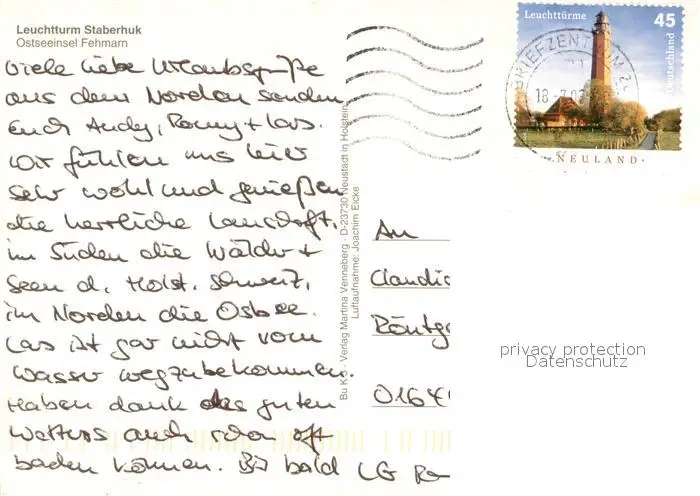 Leuchtturm Staberhuk
Ostseeinsel Fehmarn
Viele liebe Urlaubsgrüße
aus dem Norden senden
Euch Andy, Romy + Lars.
Wir fühlen uns hier
sehr wohl und genießen
die herrliche Landschft,
im Süden die Wälder +
Seen d. Holst. Schweiz,
im Norden die Ostsee.
Lars ist gar nicht vom
Wasser wegzubekommen.
Haben dank des guten
Wetters auch schon oft
baden können. Bis bald LG
Bu K - Verlag Martina Venneberg - D-23730 Neustadt in Holstein
Luftaufnahme: Joachim Eicke
Leuchttürme 45
Deutschland
NEULAND
BRIEFZENTRUM 2
18-7.07
An
Claudia
Röntg
0164
privacy protection
Datenschutz